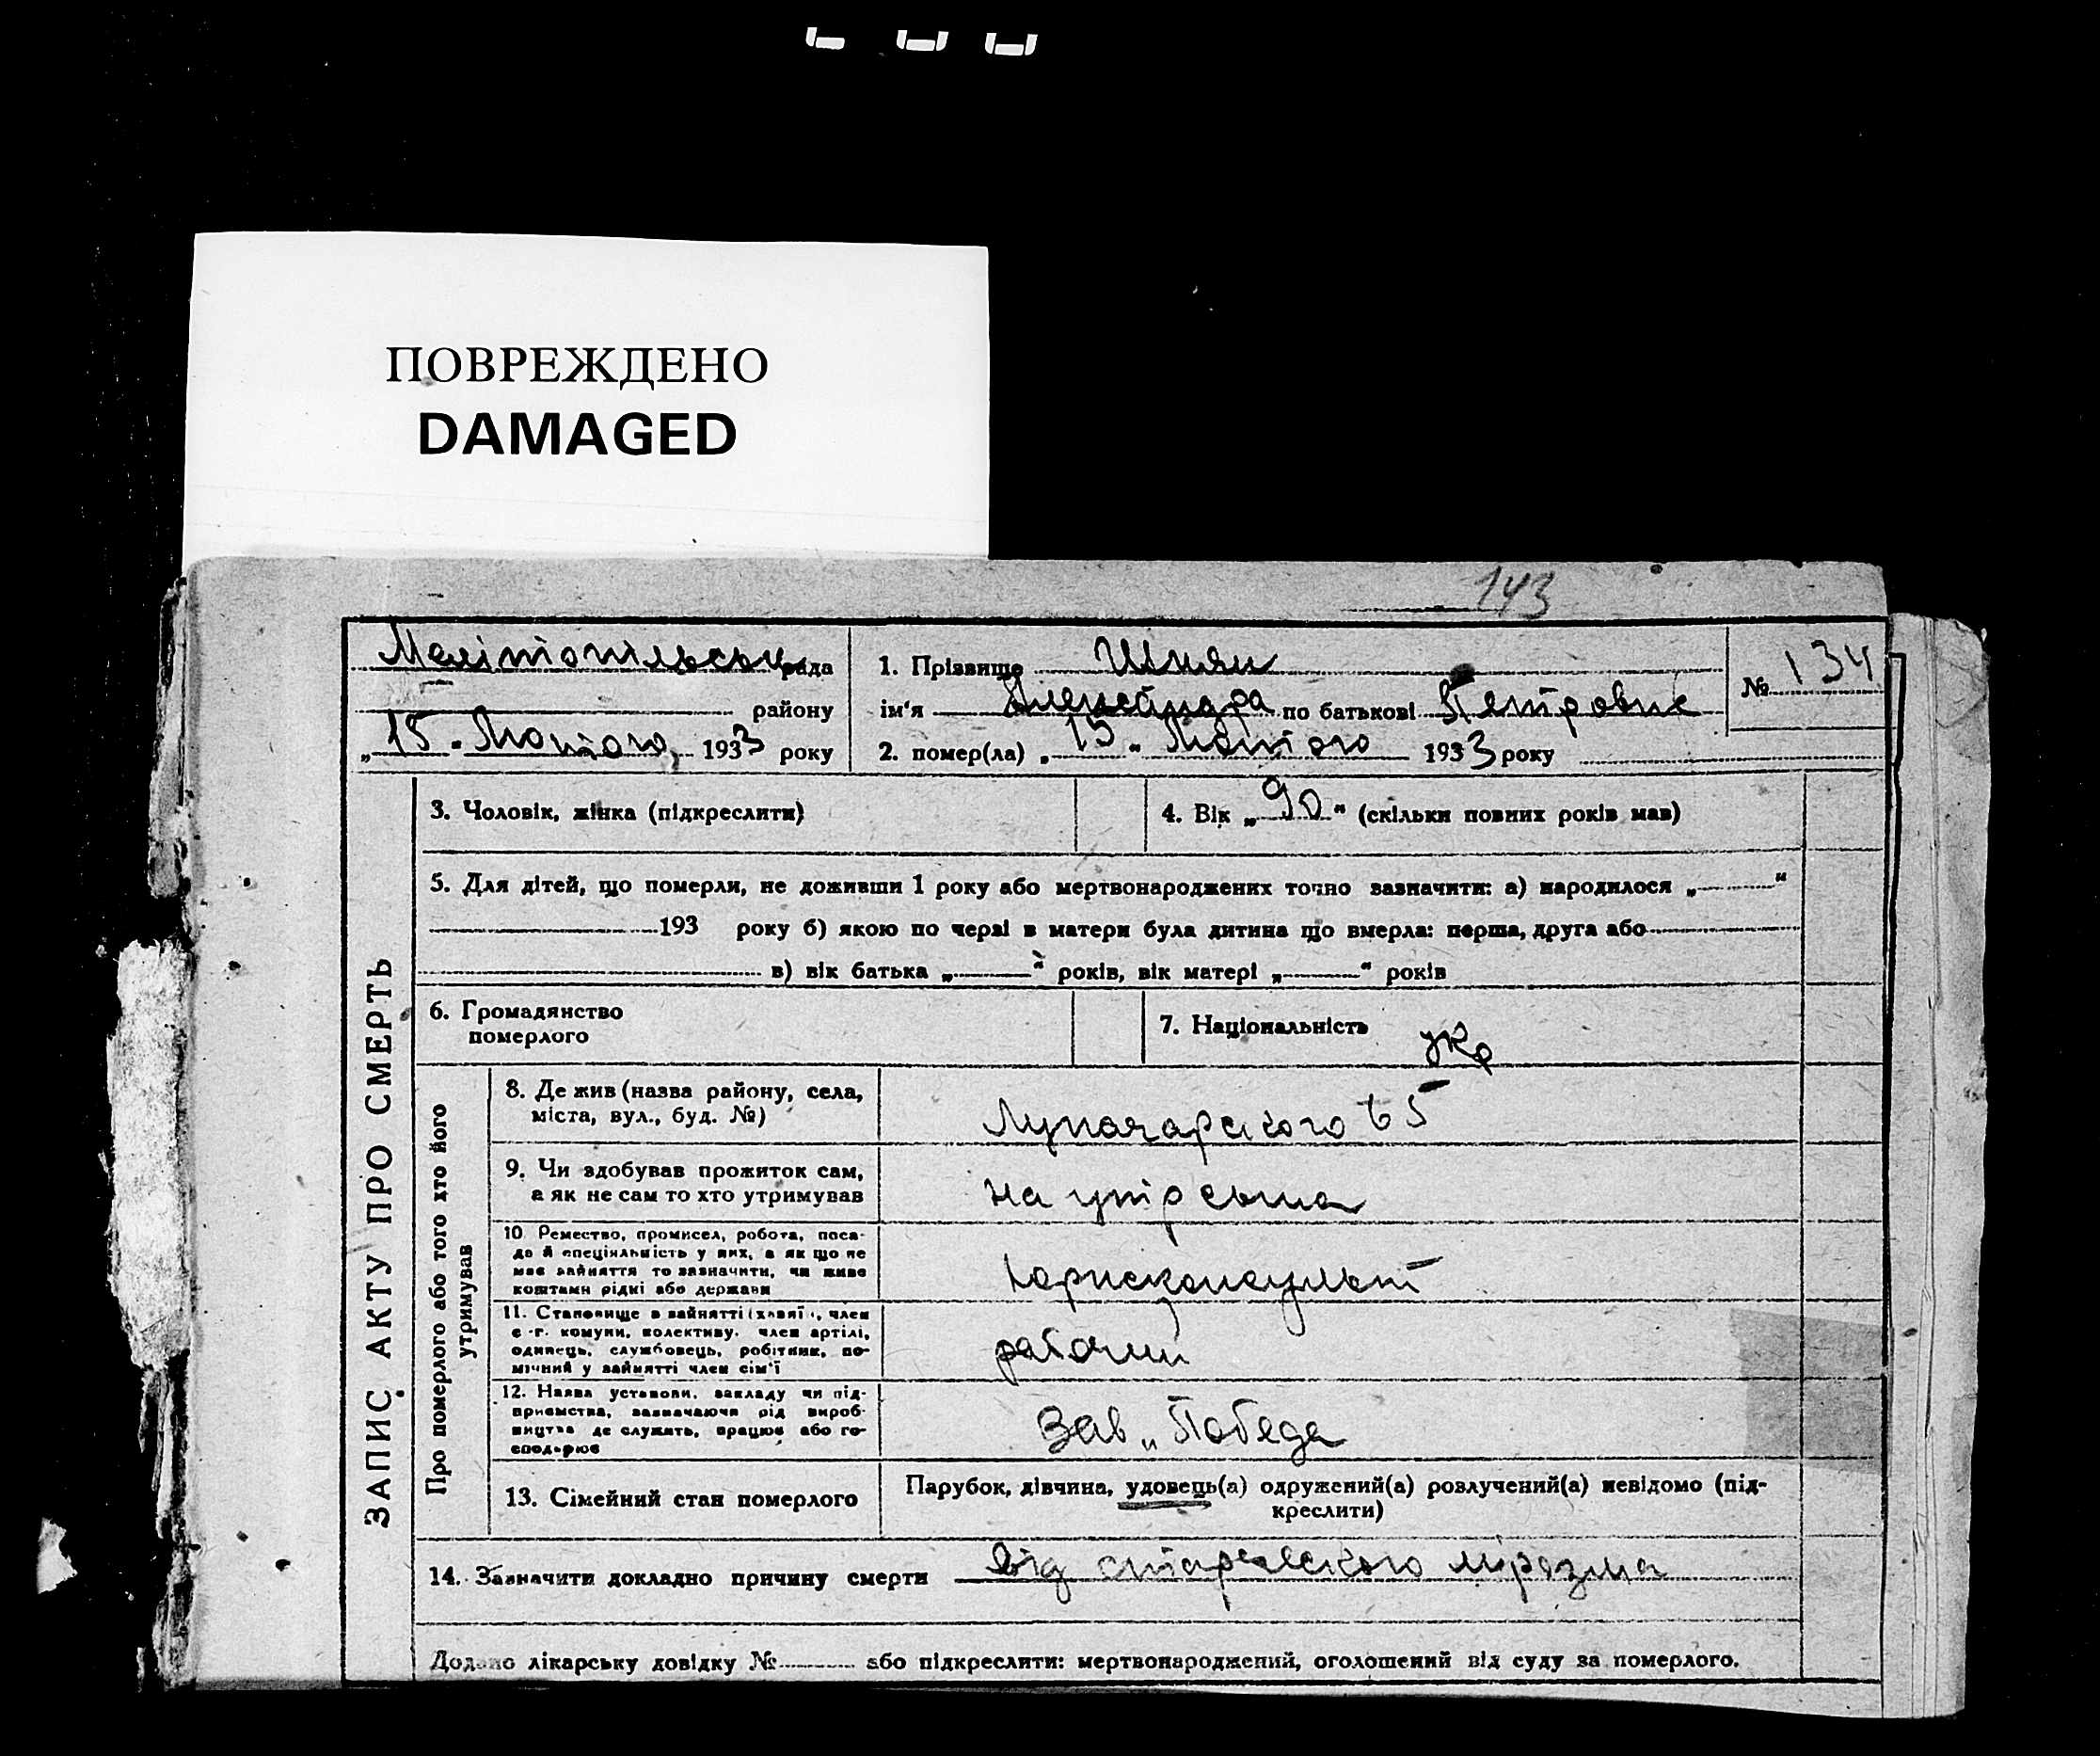 ПОВРЕЖДЕНО
DAMAGED
143
Мелітопільськ рада
району
„15" Лютого 1933 року
1. Прізвище Шиян
ім'я Александра по батькові Петровна
2. помер(ла) „15" Лютого 1933 року
№ 134
ЗАПИС АКТУ ПРО СМЕРТЬ
3. Чоловік, жінка (підкреслити)
4. Вік „90" (скільки повних років мав)
5. Для дітей, що померли, не доживши 1 року або мертвонароджених точно зазначити: а) народилося „ "
193 року б) якою по черзі в матери була дитина що вмерла: перша, друга або
в) вік батька „ " років, вік матері „ " років
6. Громадянство
померлого
7. Національність укр
Про померлого або того хто його
утримував
8. Де жив (назва району, села,
міста, вул., буд. №)
Луначарского 65
9. Чи здобував прожиток сам,
а як не сам то хто утримував
на утр сына
10 Ремество, промисел, робота, поса-
да й спеціяльність у них, а як що не
має зайняття то зазначити, чи живе
коштами рідні або держави
Юрисконсульт
11. Становище в зайнятті (хазяї , член
с.-г. комуни, колективу, член артілі,
одинець, службовець, робітник, по-
мічний у зайнятті член сім'ї
рабочий
12. Назва установи, закладу чи під-
приємства, зазначаючи рід вироб-
ництва де служить, працює або го-
сподарює
Зав „Победа
13. Сімейний стан померлого
Парубок, дівчина, удовець(а) одружений(а) розлучений(а) невідомо (під-
креслити)
14. Зазначити докладно причину смерти від старевского мрозма
Додано лікарську довідку № або підкреслити: мертвонароджений, оголошений від суду за померлого.